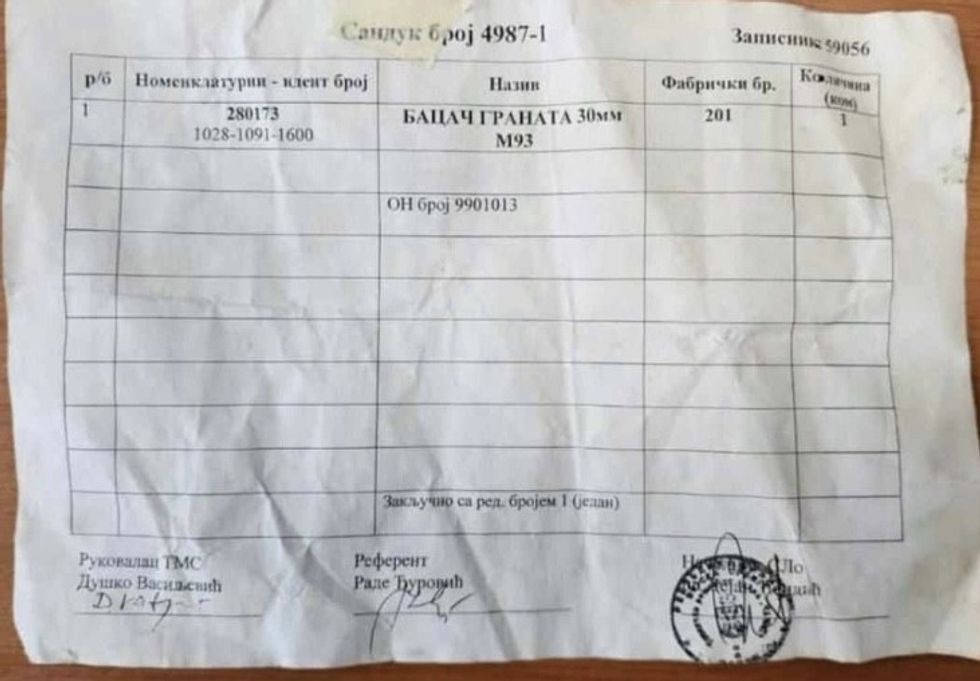 Сандук број 4987-1
Записник 59056
р/б Номенклатурни - идент број Назив Фабрички бр. Количина (ком)
1 280173 БАЦАЧ ГРАНАТА 30мм 201 1
1028-1091-1600 М93
ОН број 9901013
Закључно са ред. бројем 1 (један)
Руковалац ТМС Референт
Душко Васиљевић Раде Ђуровић